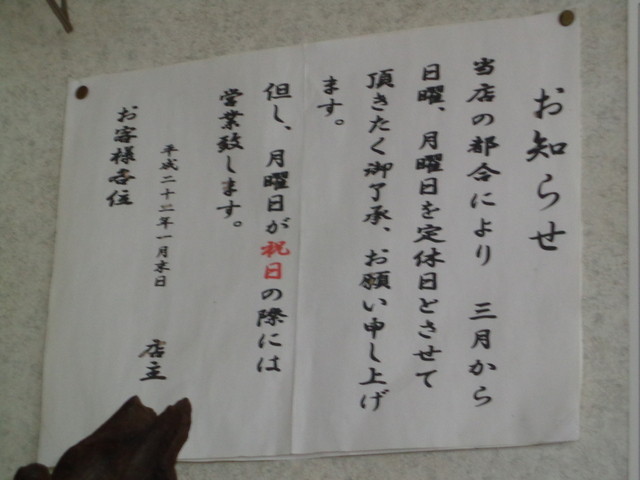 お知らせ
当店の都合により 三月から
日曜、月曜日を定休日とさせて
頂きたく御了承、お願い申し上げ
ます。
但し、月曜日が祝日の際には
営業致します。
平成二十二年一月末日
店主
お客様各位